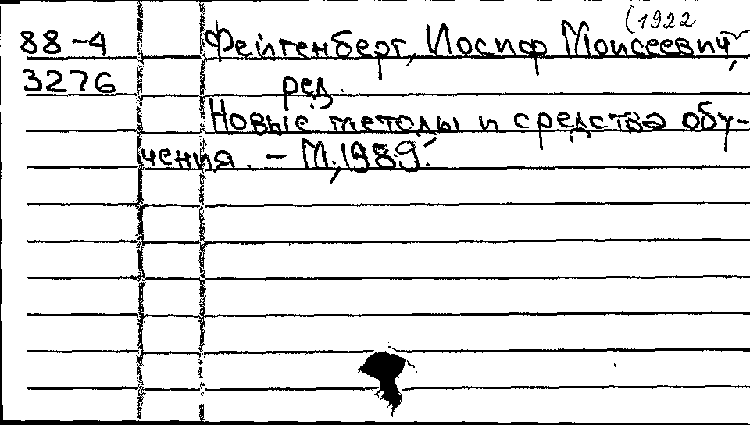 (1922
88-4 Фейгенберг, Иосиф Моисеевич,
3276 ред.
Новые методы и средства обу-
чения. - М., 1989.